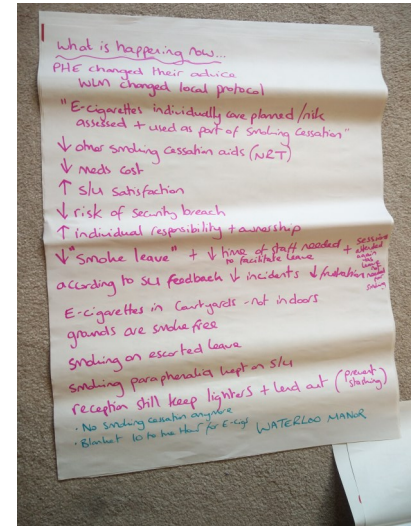 What is happening now...
PHE changed their advice
WLM changed local protocol
"E-cigarettes individually care planned/risk
assessed + used as part of smoking cessation"
↓ other smoking cessation aids (NRT)
↓ meds cost
↑ S/U satisfaction
↓ risk of security breach
↑ individual responsibility + ownership
↓ "Smoke leave" + ↓ time of staff needed to facilitate leave + sessions attended again
leave not needed for smoking
according to SU feedback ↓ incidents ↓ frustration
E-cigarettes in Courtyards - not indoors
grounds are smoke free
smoking on escorted leave
smoking paraphenalia kept on S/U
reception still keep lighters + lend out (prevent stashing)
· No smoking cessation anymore
· Blanket 10 to the Hour for E-cigs WATERLOO MANOR